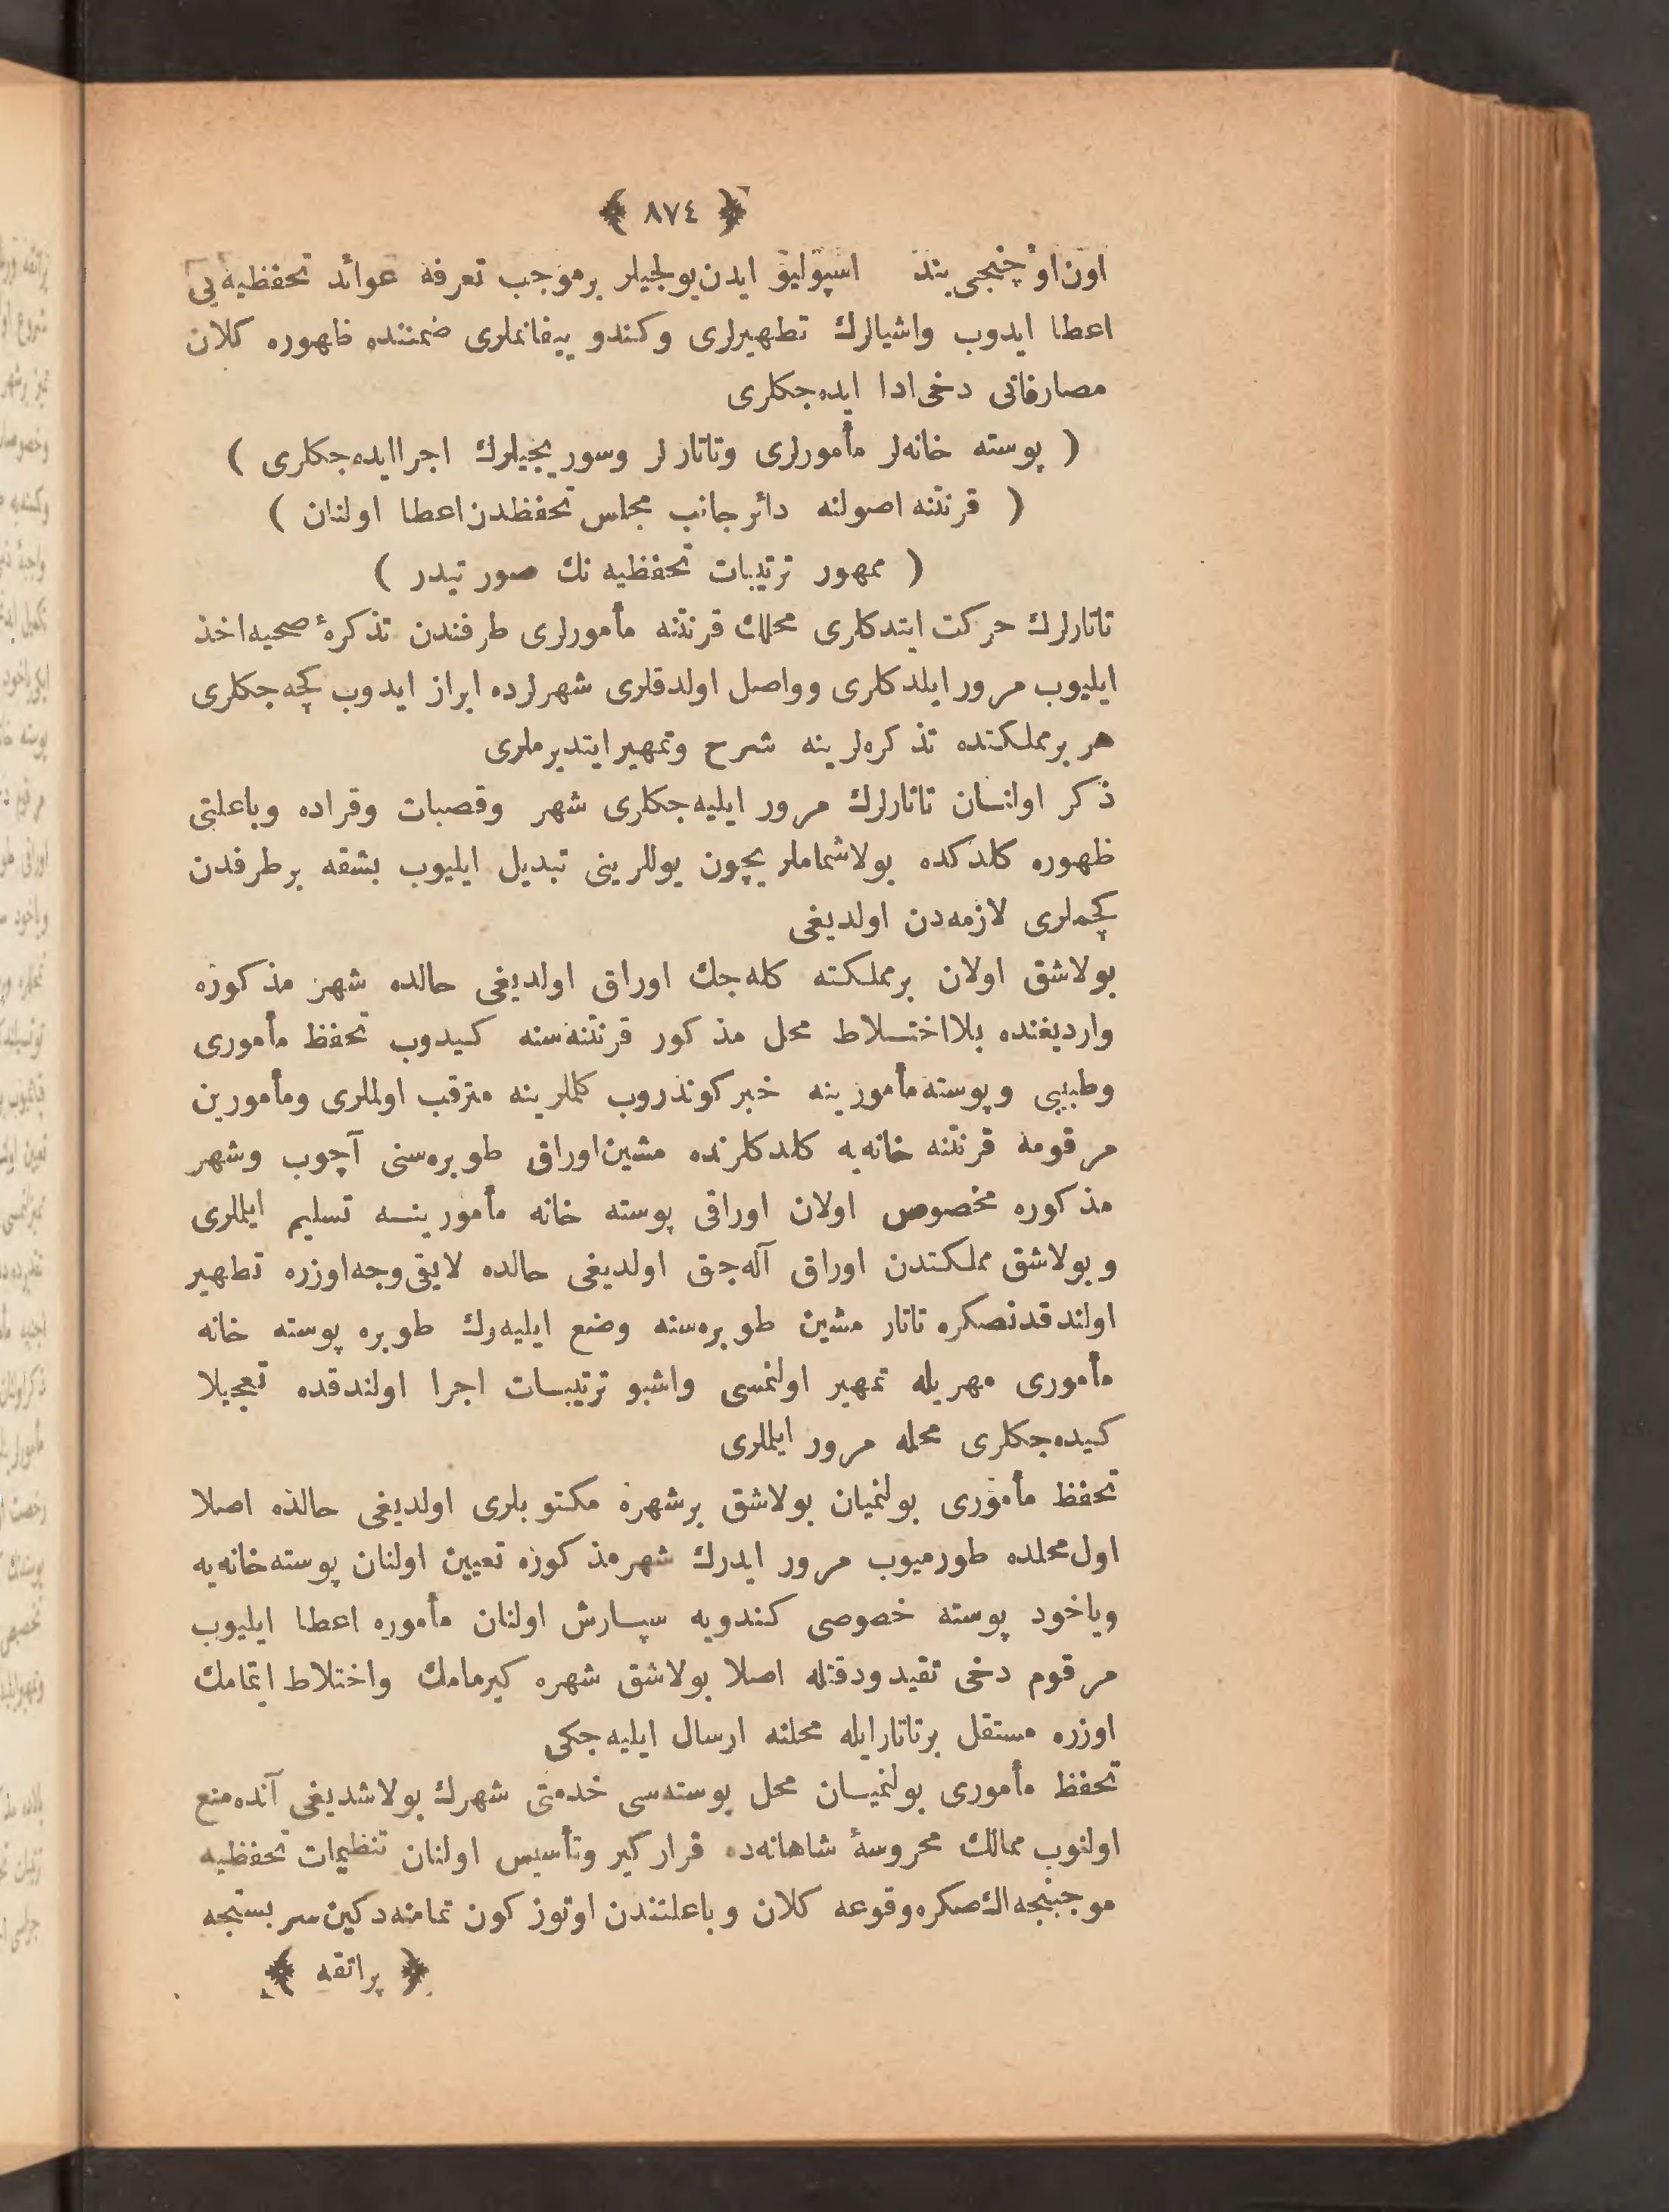 ﴿ ٨٧٤ ﴾
اون اوچنجی بند اسپوليو ايدن يولجيلر برموجب تعرفه عوائد تحفظيه‌یی
اعطا ايدوب واشيالرك تطهيرلری وكندو پيفانملری ضمننده ظهوره كلان
مصارفاتی دخی ادا ايده‌جكلری
( پوسته خانه‌لر مأمورلری وتاتارلر وسوريجيلرك اجرا ايده‌جكلری )
( قرنتنه اصولنه دائر جانب مجلس تحفظدن اعطا اولنان )
( ممهور ترتيبات تحفظيه نك صورتيدر )
تاتارلرك حركت ايتدكلری محللك قرنتنه مأمورلری طرفندن تذكرۀ صحيه اخذ
ايليوب مرور ايلدكلری وواصل اولدقلری شهرلرده ابراز ايدوب كچه‌جكلری
هر برمملكتده تذكره‌لرينه شرح وتمهير ايتديرملری
ذكر اولنان تاتارلرك مرور ايليه‌جكلری شهر وقصبات وقراده وباعلتی
ظهوره كلدكده بولاشماملريچون يوللرينی تبديل ايليوب بشقه برطرفدن
كچملری لازمه‌دن اولديغی
بولاشق اولان برمملكته كله‌جك اوراق اولديغی حالده شهر مذكوره
وارديغنده بلااختلاط محل مذكور قرنتنه‌سنه كيدوب تحفظ مأموری
وطبيبی وپوسته مأمورينه خبر كوندروب كلملرينه مترقب اولملری ومأمورين
مرقومه قرنتنه خانه‌يه كلدكلرنده مشين اوراق طوبره‌سنی آچوب وشهر
مذكوره مخصوص اولان اوراقی پوسته خانه مأمورينه تسليم ايلملری
وبولاشق مملكتدن اوراق آله‌جق اولديغی حالده لايقی وجه اوزره تطهير
اولندقدنصكره تاتار مشين طوبره‌سنه وضع ايليه‌رك طوبره پوسته خانه
مأموری مهريله تمهير اولنمسی واشبو ترتيبات اجرا اولندقده تعجيلا
كيده‌جكلری محله مرور ايلملری
تحفظ مأموری بولنميان بولاشق برشهره مكتوبلری اولديغی حالده اصلا
اول محلده طورميوب مرور ايدرك شهر مذكوره تعيين اولنان پوسته‌خانه‌يه
وياخود پوسته خصوصی كندويه سپارش اولنان مأموره اعطا ايليوب
مرقوم دخی تقيد ودقتله اصلا بولاشق شهره كيرمامك واختلاط ايتمامك
اوزره مستقل برتاتار ايله محلنه ارسال ايليه‌جكی
تحفظ مأموری بولنميان محل پوسته‌سی خدمتی شهرك بولاشديغی آنده منع
اولنوب ممالك محروسۀ شاهانه‌ده قراركير وتأسيس اولنان تنظيمات تحفظيه
موجبنجه الكصكره وقوعه كلان وباعلتندن اوتوز كون تمامنه‌دكين سربستجه
﴿ پراتقه ﴾